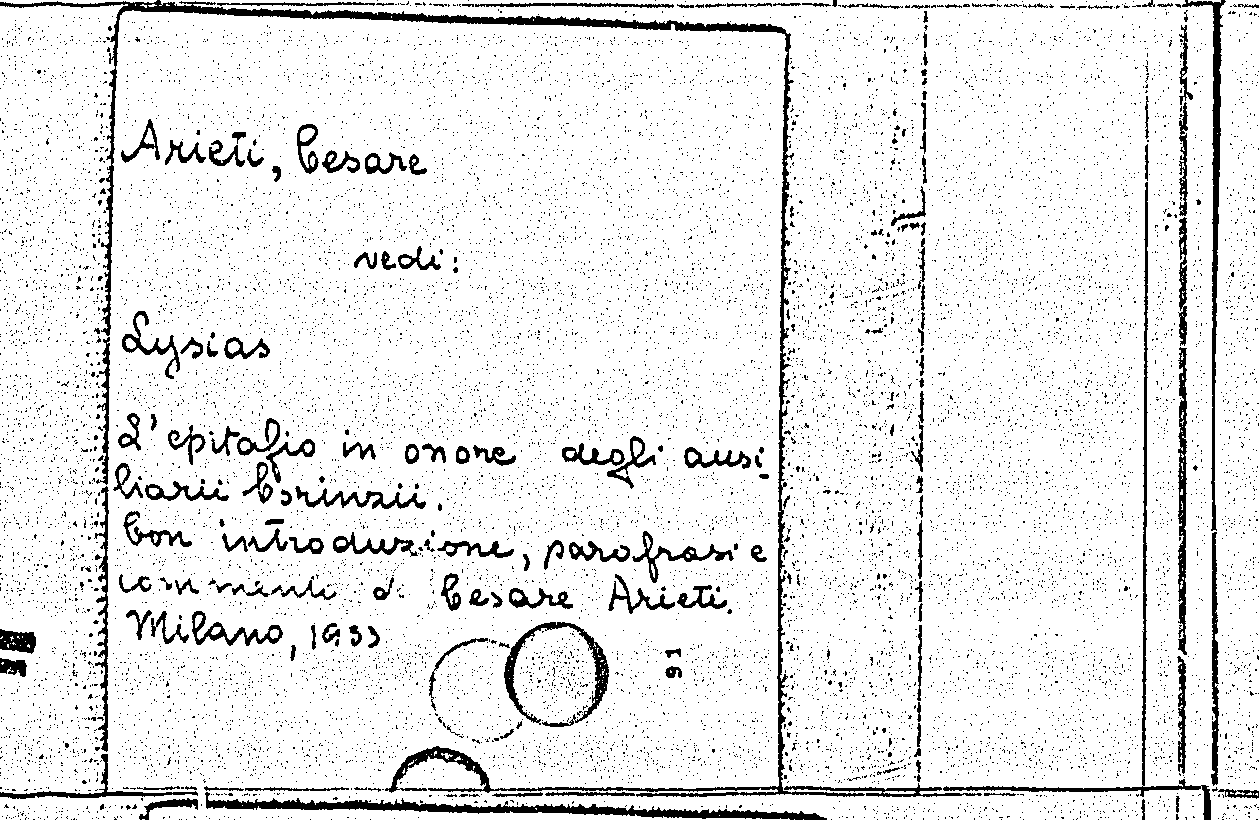 Arieti, Cesare
vedi:
Lysias
L'epitafio in onore degli ausi-
liarii Corinzii.
Con introduzione, parafrasi e
commenti di Cesare Arieti.
Milano, 1933
91